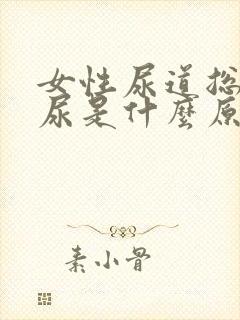 女性尿道总
尿是什麼原
素小骨